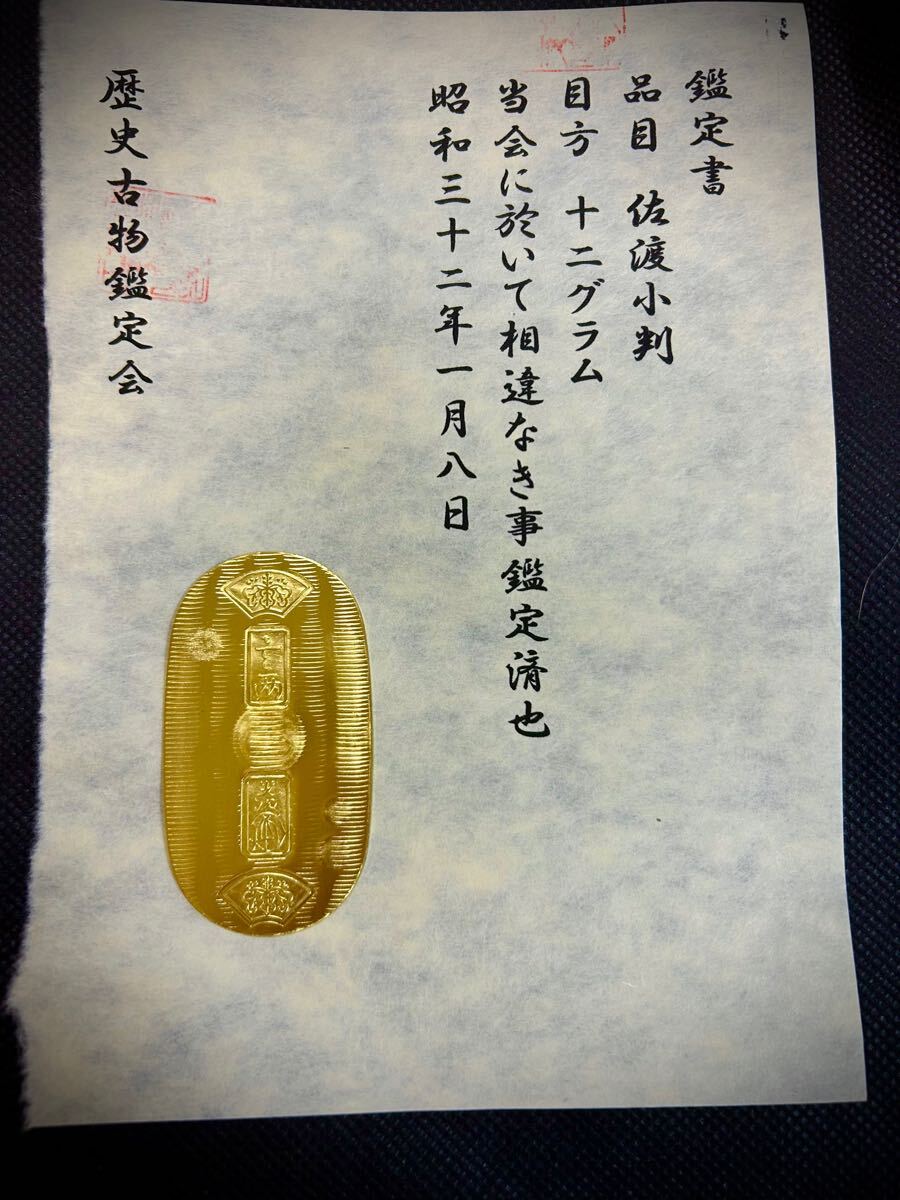 鑑定書
品目 佐渡小判
目方 十二グラム
当会に於いて相違なき事鑑定済也
昭和三十二年一月八日
歴史古物鑑定会